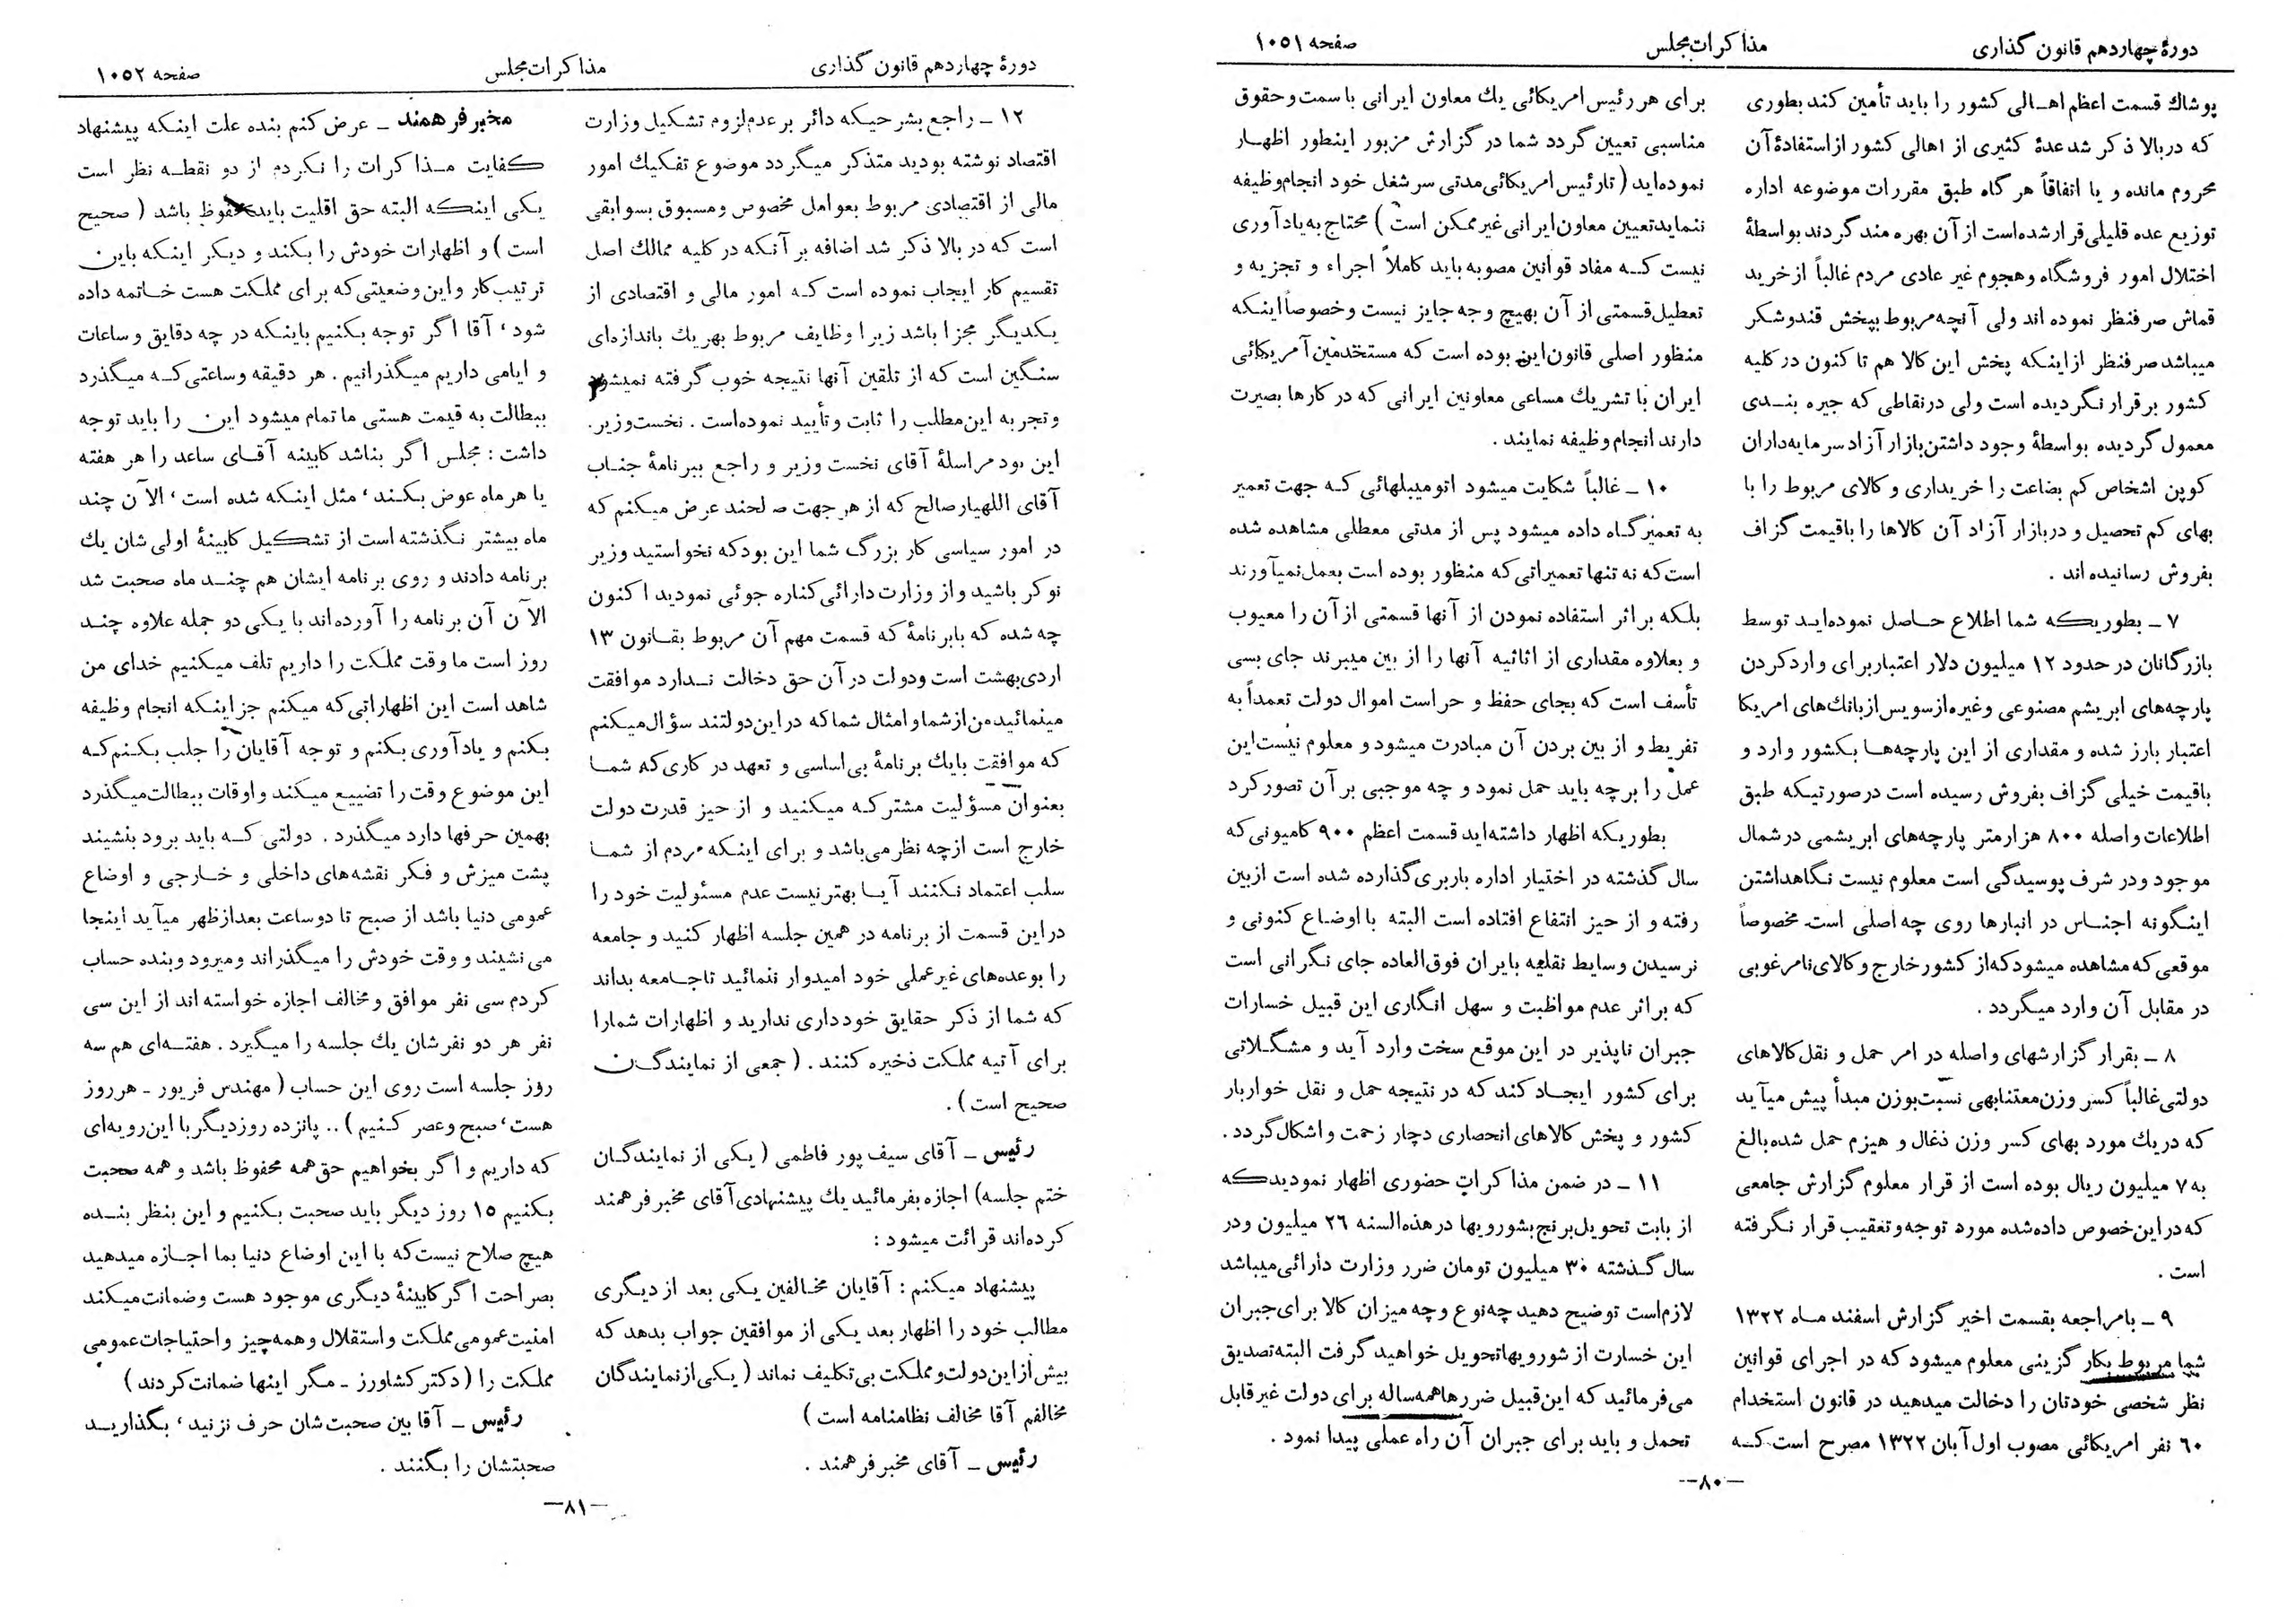 دورهٔ چهاردهم قانون گذاری
مذاکرات مجلس
صفحه ۱۰۵۱
پوشاك قسمت اعظم اهـالی کشور را باید تأمین کند بطوری
که در بالا ذکر شد عدهٔ کثیری از اهالی کشور از استفادهٔ آن
محروم مانده و یا اتفاقاً هر گاه طبق مقررات موضوعه اداره
توزیع عده قلیلی قرار شده است از آن بهره مند گردند بواسطهٔ
اختلال امور فروشگاه و هجوم غیر عادی مردم غالباً از خرید
قماش صرفنظر نموده اند ولی آنچه مربوط بپخش قند و شکر
میباشد صرفنظر از اینکه پخش این کالا هم تا کنون در کلیه
کشور بر قرار نگردیده است ولی در نقاطی که جیره بنـدی
معمول گردیده بواسطهٔ وجود داشتن بازار آزاد سرمایه داران
کوپن اشخاص کم بضاعت را خریداری و کالای مربوط را با
بهای کم تحصیل و در بازار آزاد آن کالاها را با قیمت گزاف
بفروش رسانیده اند .
۷ ـ بطوریکه شما اطلاع حـاصل نموده‌ایـد توسط
بازرگانان در حدود ۱۲ میلیون دلار اعتبار برای وارد کردن
پارچه‌های ابریشم مصنوعی و غیره از سویس از بانك‌های امریکا
اعتبار بارز شده و مقداری از این پارچه‌هـا بکشور وارد و
با قیمت خیلی گزاف بفروش رسیده است در صورتیکه طبق
اطلاعات واصله ۸۰۰ هزار متر پارچه‌های ابریشمی در شمال
موجود و در شرف پوسیدگی است معلوم نیست نگاهداشتن
اینگونه اجنـاس در انبارها روی چه اصلی است مخصوصاً
موقعی که مشاهده میشود که از کشور خارج و کالای نامرغوبی
در مقابل آن وارد میگردد .
۸ ـ بقرار گزارشهای واصله در امر حمل و نقل کالاهای
دولتی غالباً کسر وزن معتنابهی نسبت بوزن مبدأ پیش میآید
که در یك مورد بهای کسر وزن ذغال و هیزم حمل شده بالغ
به ۷ میلیون ریال بوده است از قرار معلوم گزارش جامعی
که در این خصوص داده شده مورد توجه و تعقیب قرار نگرفته
است .
۹ ـ با مراجعه بقسمت اخیر گزارش اسفند مـاه ۱۳۲۲
شما مربوط بکار گزینی معلوم میشود که در اجرای قوانین
نظر شخصی خودتان را دخالت میدهید در قانون استخدام
۶۰ نفر امریکائی مصوب اول آبان ۱۳۲۲ مصرح است کـه
برای هر رئیس امریکائی یك معاون ایرانی با سمت و حقوق
مناسبی تعیین گردد شما در گزارش مزبور اینطور اظهـار
نموده‌اید ( تا رئیس امریکائی مدتی سر شغل خود انجام وظیفه
ننماید تعیین معاون ایرانی غیر ممکن است ) محتاج به یاد آوری
نیست کـه مفاد قوانین مصوبه باید کاملاً اجراء و تجزیه و
تعطیل قسمتی از آن بهیچ وجه جایز نیست و خصوصاً اینکه
منظور اصلی قانون این بوده است که مستخدمین آمریکائی
ایران با تشریك مساعی معاونین ایرانی که در کارها بصیرت
دارند انجام وظیفه نمایند .
۱۰ ـ غالباً شکایت میشود اتومبیلهائی کـه جهت تعمیر
به تعمیرگـاه داده میشود پس از مدتی معطلی مشاهده شده
است که نه تنها تعمیراتی که منظور بوده است بعمل نمیآورند
بلکه بر اثر استفاده نمودن از آنها قسمتی از آن را معیوب
و بعلاوه مقداری از اثاثیه آنها را از بین میبرند جای بسی
تأسف است که بجای حفظ و حراست اموال دولت تعمداً به
تفریط و از بین بردن آن مبادرت میشود و معلوم نیست این
عمل را بر چه باید حمل نمود و چه موجبی بر آن تصور کرد
بطوریکه اظهار داشته‌اید قسمت اعظم ۹۰۰ کامیونی که
سال گذشته در اختیار اداره باربری گذارده شده است از بین
رفته و از حیز انتفاع افتاده است البته با اوضـاع کنونی و
نرسیدن وسایط نقلیه بایران فوق‌العاده جای نگرانی است
که بر اثر عدم مواظبت و سهل انگاری این قبیل خسارات
جبران ناپذیر در این موقع سخت وارد آید و مشگـلاتی
برای کشور ایجـاد کند که در نتیجه حمل و نقل خواربار
کشور و پخش کالاهای انحصاری دچار زحمت و اشکال گردد .
۱۱ ـ در ضمن مذاکرات حضوری اظهار نمودیدکه
از بابت تحویل برنج بشورویها در هذه‌السنه ۲۶ میلیون و در
سال گذشته ۳۰ میلیون تومان ضرر وزارت دارائی میباشد
لازم است توضیح دهید چه نوع و چه میزان کالا برای جبران
این خسارت از شورویها تحویل خواهید گرفت البته تصدیق
می‌فرمائید که این قبیل ضررها همه ساله برای دولت غیر قابل
تحمل و باید برای جبران آن راه عملی پیدا نمود .
—۸۰—
دورهٔ چهاردهم قانون گذاری
مذاکرات مجلس
صفحه ۱۰۵۲
۱۲ ـ راجع بشرحیکه دائر بر عدم لزوم تشکیل وزارت
اقتصاد نوشته بودید متذکر میگردد موضوع تفکیك امور
مالی از اقتصادی مربوط بعوامل مخصوص و مسبوق بسوابقی
است که در بالا ذکر شد اضافه بر آنکه در کلیه ممالك اصل
تقسیم کار ایجاب نموده است کـه امور مالی و اقتصادی از
یکدیگر مجزا باشد زیرا وظایف مربوط بهریك باندازه‌ای
سنگین است که از تلقین آنها نتیجه خوب گرفته نمیشود
و تجربه این مطلب را ثابت و تأیید نموده است . نخست وزیر.
این بود مراسلهٔ آقای نخست وزیر و راجع ببرنامهٔ جنـاب
آقای اللهیار صالح که از هر جهت صالحند عرض میکنم که
در امور سیاسی کار بزرگ شما این بود که نخواستید وزیر
نوکر باشید و از وزارت دارائی کناره جوئی نمودید اکنون
چه شده که با برنامهٔ که قسمت مهم آن مربوط بقـانون ۱۳
اردی‌بهشت است و دولت در آن حق دخالت نـدارد موافقت
مینمائید من از شما و امثال شما که در این دولتند سؤال میکنم
که موافقت با یك برنامهٔ بی اساسی و تعهد در کاری که شمـا
بعنوان مسؤلیت مشترکـه میکنید و از حیز قدرت دولت
خارج است از چه نظر می‌باشد و برای اینکه مردم از شمـا
سلب اعتماد نکنند آیـا بهتر نیست عدم مسئولیت خود را
در این قسمت از برنامه در همین جلسه اظهار کنید و جامعه
را بوعده‌های غیر عملی خود امیدوار ننمائید تا جـامعه بداند
که شما از ذکر حقایق خودداری ندارید و اظهارات شما را
برای آتیه مملکت ذخیره کنند . ( جمعی از نمایندگـان
صحیح است ) .
رئیس ـ آقای سیف پور فاطمی ( یکی از نمایندگـان
ختم جلسه) اجازه بفرمائید یك پیشنهادی آقای مخبر فرهمند
کرده‌اند قرائت میشود :
پیشنهاد میکنم : آقایان مخـالفین یکی بعد از دیگری
مطالب خود را اظهار بعد یکی از موافقین جواب بدهد که
بیش از این دولت و مملکت بی تکلیف نماند ( یکی از نمایندگان
مخالفم آقا مخالف نظامنامه است )
رئیس ـ آقای مخبر فرهمند .
مخبر فرهمند ـ عرض کنم بنده علت اینکه پیشنهاد
کفایت مـذاکرات را نکردم از دو نقطـه نظر است
یکی اینکه البته حق اقلیت باید محفوظ باشد ( صحیح
است ) و اظهارات خودش را بکند و دیگر اینکه باین
ترتیب کار و این وضعیتی که برای مملکت هست خـاتمه داده
شود ، آقا اگر توجه بکنیم باینکه در چه دقایق و ساعات
و ایامی داریم میگذرانیم . هر دقیقه و ساعتی کـه میگذرد
ببطالت به قیمت هستی ما تمام میشود این را باید توجه
داشت : مجلس اگر بنا شد کابینه آقـای ساعد را هر هفته
یا هر ماه عوض بکـند ، مثل اینکه شده است ، الآن چند
ماه بیشتر نگذشته است از تشکیل کابینهٔ اولی شان یك
برنامه دادند و روی برنامه ایشان هم چنـد ماه صحبت شد
الآن آن برنامه را آورده‌اند با یکی دو جمله علاوه چنـد
روز است ما وقت مملکت را داریم تلف میکنیم خدای من
شاهد است این اظهاراتی که میکنم جز اینکه انجام وظیفه
بکنم و یاد آوری بکنم و توجه آقایان را جلب بکنم کـه
این موضوع وقت را تضییع میکند و اوقات ببطالت میگذرد
بهمین حرفها دارد میگذرد . دولتی کـه باید برود بنشیند
پشت میزش و فکر نقشه‌های داخلی و خـارجی و اوضاع
عمومی دنیا باشد از صبح تا دو ساعت بعد از ظهر میآید اینجا
می نشیند و وقت خودش را میگذراند و میرود و بنده حساب
کردم سی نفر موافق و مخالف اجازه خواسته اند از این سی
نفر هر دو نفرشان یك جلسه را میگیرد . هفتـه‌ای هم سه
روز جلسه است روی این حساب ( مهندس فریور ـ هر روز
هست ، صبح و عصر کـنیم ) .. پانزده روز دیگر با این رویه‌ای
که داریم و اگر بخواهیم حق همه محفوظ باشد و همه صحبت
بکنیم ۱۵ روز دیگر باید صحبت بکنیم و این بنظر بنـده
هیچ صلاح نیست که با این اوضاع دنیا بما اجـازه میدهید
بصراحت اگر کابینهٔ دیگری موجود هست و ضمانت میکند
امنیت عمومی مملکت و استقلال و همه چیز و احتیاجات عمومی
مملکت را ( دکتر کشاورز ـ مگر اینها ضمانت کردند )
رئیس ـ آقا بین صحبت شان حرف نزنید ، بگذاریـد
صحبتشان را بکنند .
—۸۱—